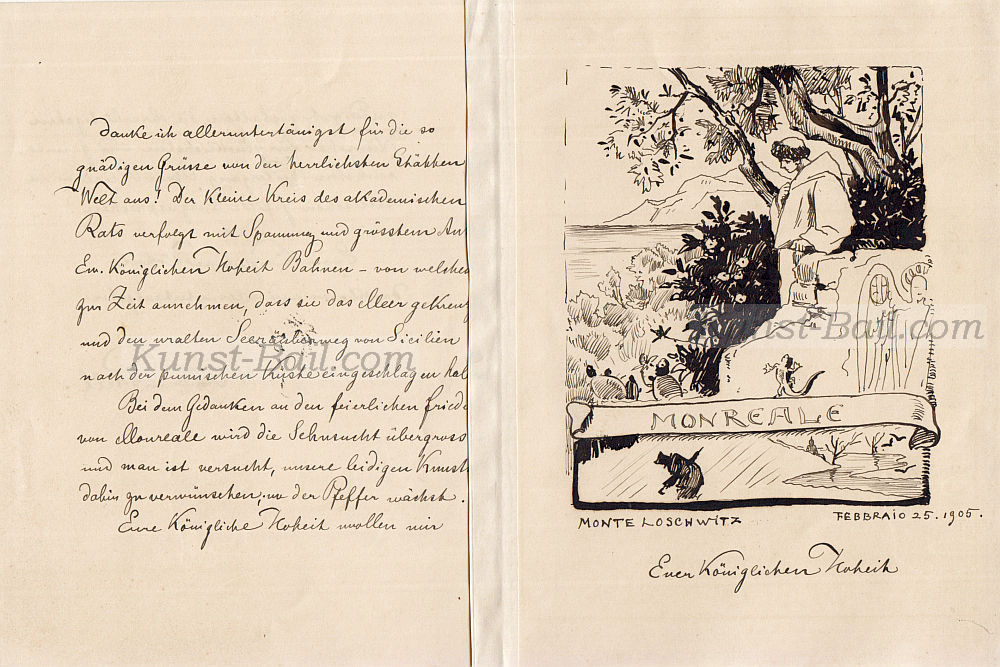 danke ich alleruntertänigst für die so
gnädigen Grüsse von den herrlichsten Stätten
Welt aus! Der kleine Kreis des akademischen
Rats verfolgt mit Spannung und grösstem Ant
Ew. Königlichen Hoheit Bahnen – von welchen
zur Zeit annehmen, dass sie das Meer gekreuz
und den uralten Seeräuberweg von Sicilien
nach der punischen Küste eingeschlagen hab
Bei dem Gedanken an den feierlichen Friede
von Monreale wird die Sehnsucht übergross
und man ist versucht, unsere leidigen Kunst
dahin zu verwünschen, wo der Pfeffer wächst.
Eure Königliche Hoheit wollen mir
MONREALE
MONTE LOSCHWITZ
FEBBRAIO 25. 1905.
Euer Königlichen Hoheit
Kunst-Bail.com
Kunst-Bail.com